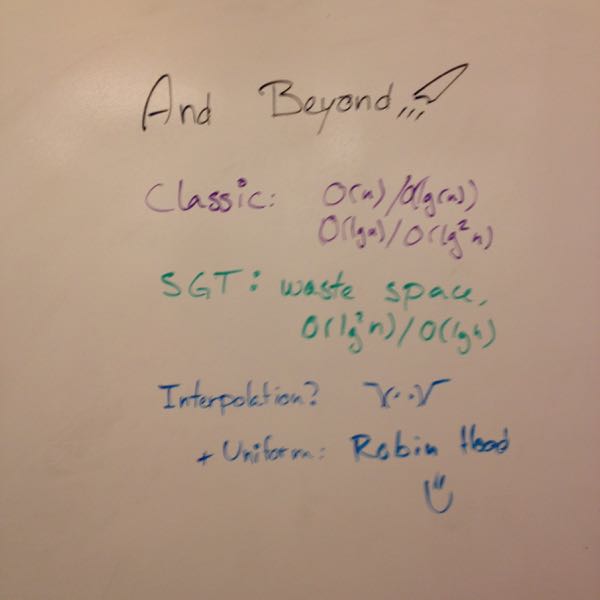 And Beyond,,,
Classic: O(n)/O(lg(n))
O(lgn)/O(lg²n)
SGT: waste space,
O(lg²n)/O(lgn)
Interpolation? ¯\(··)/¯
+ Uniform: Robin Hood